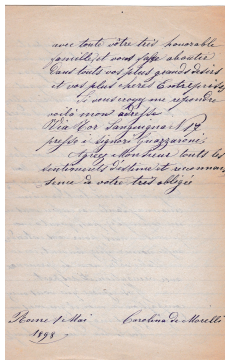 avec toute vôtre très honorable
famille, et vous fasse aboutir
dans touts vos plus grands désirs
et vos plus chères Entreprises
Si vous voyez me répondre
voilà mon adresse
Via Tor Sanguigna N 17
presso i Signori Guazzaroni
Agréez Monsieur touts les
sentiments d'éstime et reconnais
sence de votre très obligée
Rome 1 Mai Carolina de Morelli
1898